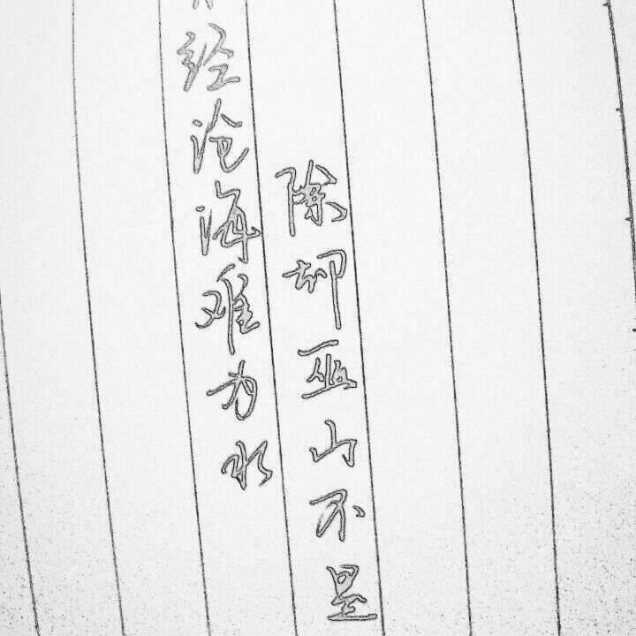 经沧海难为水
除却巫山不是